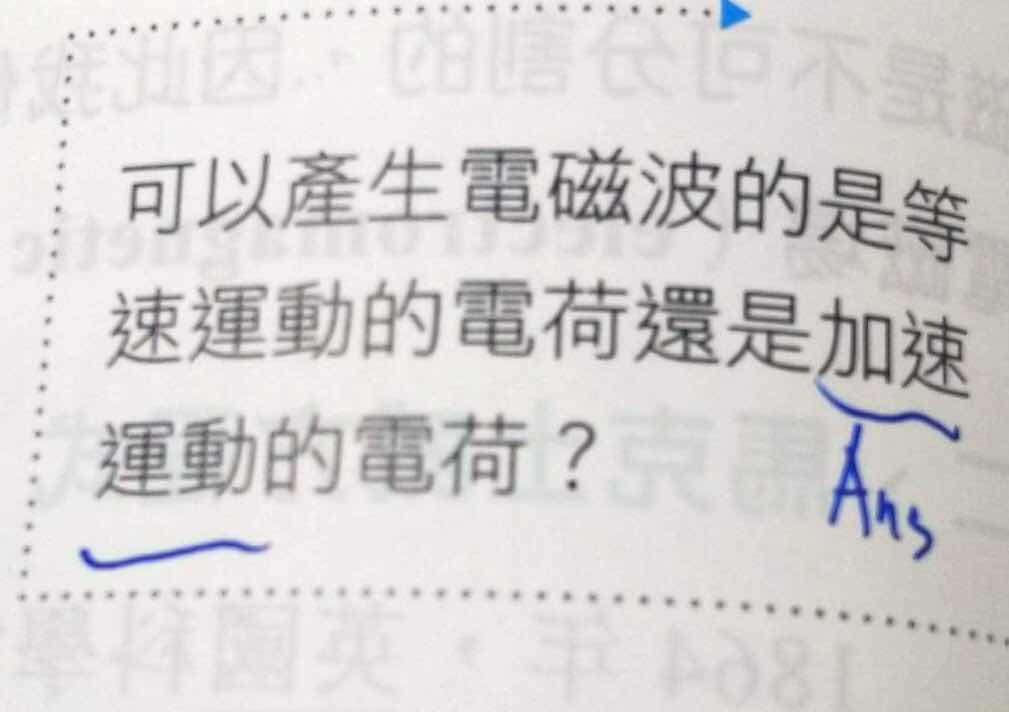 可以產生電磁波的是等
速運動的電荷還是加速
運動的電荷？
Ans